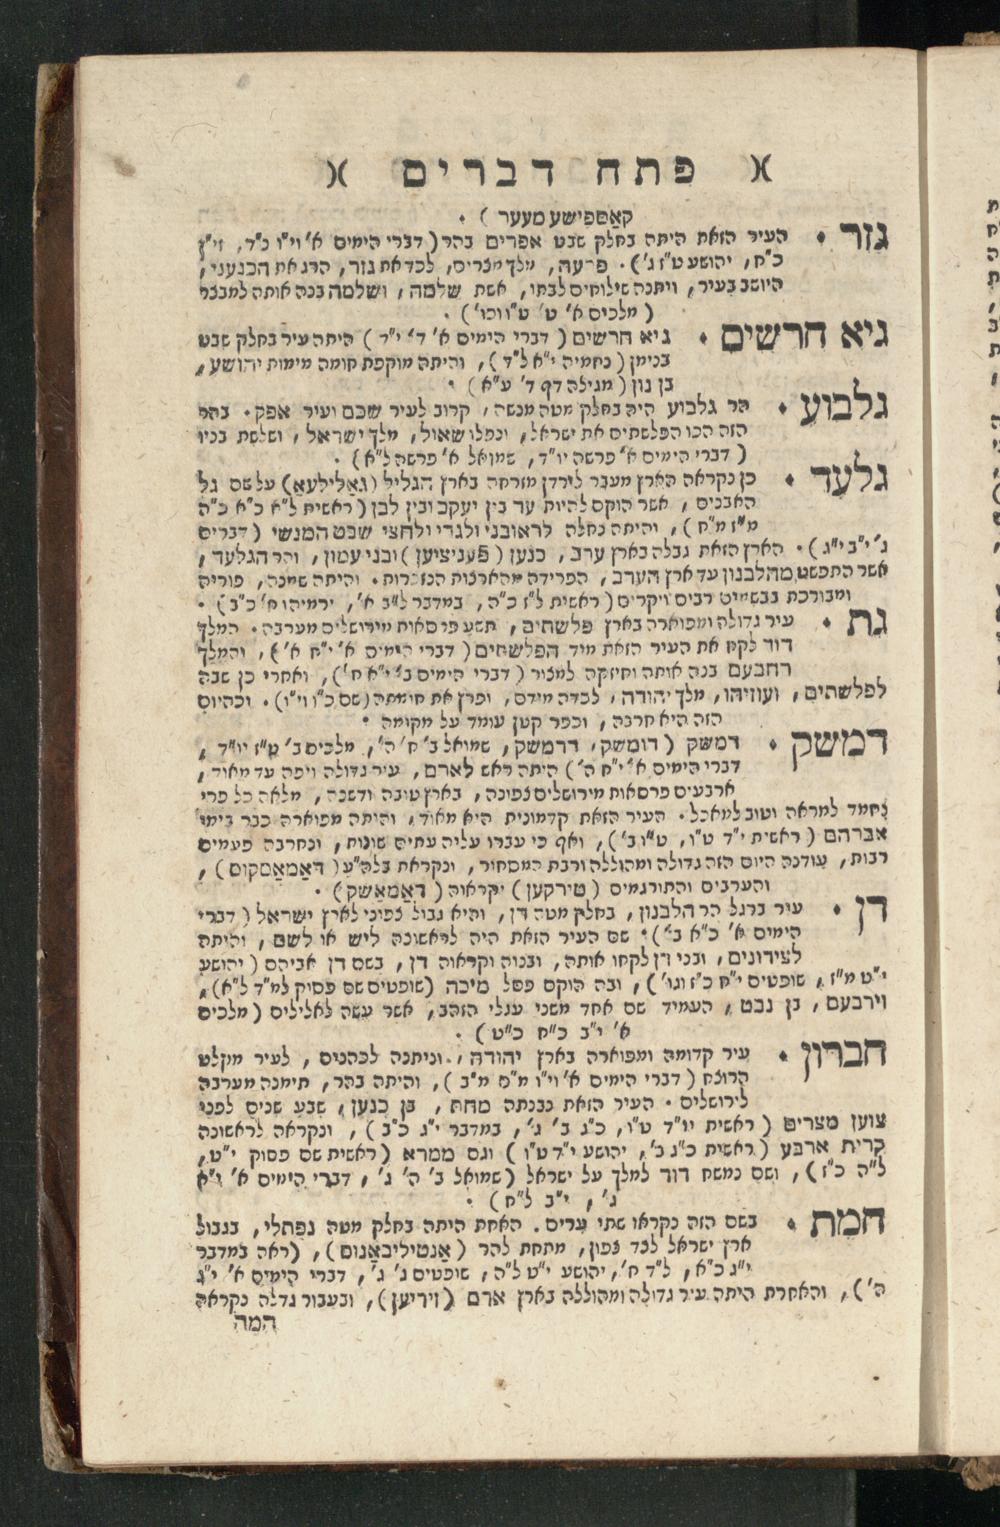 )( פתח דברים )(
קאַספישע מעער ) .
גזר . העיר הזאת היתה בחלק שבט אפרים בהר ( דברי הימים א' וי"ו כ"ד, זי"ן
כ"ח, יהושע ט"ז ג' ) . פרעה, מלך מצרים, לכד את גזר, הרג את הכנעני,
היושב בעיר, ויתנה שילוחים לבתו, אשת שלמה, ושלמה בנה אותה למבצר
( מלכים א' ט' ט"ו וכו' ) .
גיא חרשים . גיא חרשים ( דברי הימים א' ד' י"ד ) היתה עיר בחלק שבט
בנימן ( נחמיה י"א ל"ד ) , והיתה מוקפת חומה מימות יהושע,
בן נון ( מגילה דף ד' ע"א ) .
גלבוע . הר גלבוע היה בחלק מטה מנשה, קרוב לעיר שכם ועיר אפק . בהר
הזה הכו הפלשתים את ישראל, ונפלו שאול, מלך ישראל, ושלשת בניו
( דברי הימים א' פרשה יו"ד, שמואל א' פרשה ל"א ) .
גלעד . כן נקראה הארץ מעבר לירדן מזרחה בארץ הגליל ( גאַלילעאַ ) על שם גל
האבנים, אשר הוקם להיות עד בין יעקב ובין לבן ( ראשית ל"א כ"א כ"ה
מ"ז מ"ח ) , והיתה נחלה לראובני ולגדי ולחצי שבט המנשי ( דברים
ג' י"ב י"ג ) . הארץ הזאת גבלה בארץ ערב, כנען ( פעניציען ) ובני עמון, והר הגלעד,
אשר התפשט מהלבנון עד ארץ הערב, הפרידה מהארצות הנזכרות . והיתה שמנה, פוריה
ומבורכת בבשמים רבים ויקרים ( ראשית ל"ז כ"ה, במדבר ל"ב א', ירמיהו ח' כ"ב ) .
גת . עיר גדולה ומפוארה בארץ פלשתים, תשע פרסאות מירושלים מערבה . המלך
דוד לקח את העיר הזאת מיד הפלשתים ( דברי הימים א' י"ח א' ) , והמלך
רחבעם בנה אותה וחיזקה למצור ( דברי הימים ב' י"א ח' ) , ואחרי כן שבה
לפלשתים, ועוזיהו, מלך יהודה, לכדה מידם, ופרץ את חומתה ( שם כ"ו וי"ו ) . וכהיום
הזה היא חרבה, וכפר קטן עומד על מקומה .
דמשק . דמשק ( דומשק, דרמשק, שמואל ב' ח' ה', מלכים ב' ט"ז יו"ד,
דברי הימים א' י"ח ה' ) היתה ראש לארם, עיר גדולה ויפה עד מאוד,
ארבעים פרסאות מירושלים צפונה, בארץ טובה ודשנה, מלאה כל פרי
נחמד למראה וטוב למאכל . העיר הזאת קדמונית היא מאוד, והיתה מפוארה כבר בימי
אברהם ( ראשית י"ד ט"ו, ט"ו ב' ) , ואף כי עברו עליה עתים שונות, ונחרבה פעמים
רבות, עודנה היום הזה גדולה ומהוללה ורבת המסחור, ונקראת בלה"ע ( דאַמאַסקוס ) ,
והערבים והתורגמים ( טירקען ) יקראוה ( דאַמאַשק ) .
דן . עיר ברגל הר הלבנון, בחלק מטה דן, והיא גבול צפוני לארץ ישראל ( דברי
הימים א' כ"א ב' ) . שם העיר הזאת היה לראשונה ליש או לשם, והיתה
לצידונים, ובני דן לקחו אותה, ובנוה וקראוה דן, בשם דן אביהם ( יהושע
י"ט מ"ז, שופטים י"ח כ"ז וגו' ) , ובה הוקם פסל מיכה ( שופטים שם פסוק למ"ד ל"א ) ,
וירבעם, בן נבט, העמיד שם אחד משני עגלי הזהב, אשר עשה לאלילים ( מלכים
א' י"ב כ"ח כ"ט ) .
חברון . עיר קדומה ומפוארה בארץ יהודה, וניתנה לכהנים, לעיר מקלט
הרוצח ( דברי הימים א' וי"ו מ"ם מ"ב ) , והיתה בהר, תימנה מערבה
לירושלים . העיר הזאת נבנתה מחת, בן כנען, שבע שנים לפני
צוען מצרים ( ראשית יו"ד ט"ו, כ"ג ב' ג', במדבר י"ג כ"ב ) , ונקראה לראשונה
קרית ארבע ( ראשית כ"ג ב', יהושע י"ד ט"ו ) וגם ממרא ( ראשית שם פסוק י"ט,
ל"ה כ"ז ) , ושם נמשח דוד למלך על ישראל ( שמואל ב' ה' ג', דברי הימים א' י"א
ג', י"ב ל"ח ) .
חמת . בשם הזה נקראו שתי ערים . האחת היתה בחלק מטה נפתלי, בגבול
ארץ ישראל לצד צפון, מתחת להר ( אַנטיליבאַנוס ) , ( ראה במדבר
י"ג כ"א, ל"ד ח', יהושע י"ט ל"ה, שופטים ג' ג', דברי הימים א' י"ג
ה' ) , והאחרת היתה עיר גדולה ומהוללה בארץ ארם ( זיריען ) , ובעבור גדלה נקראה
המה